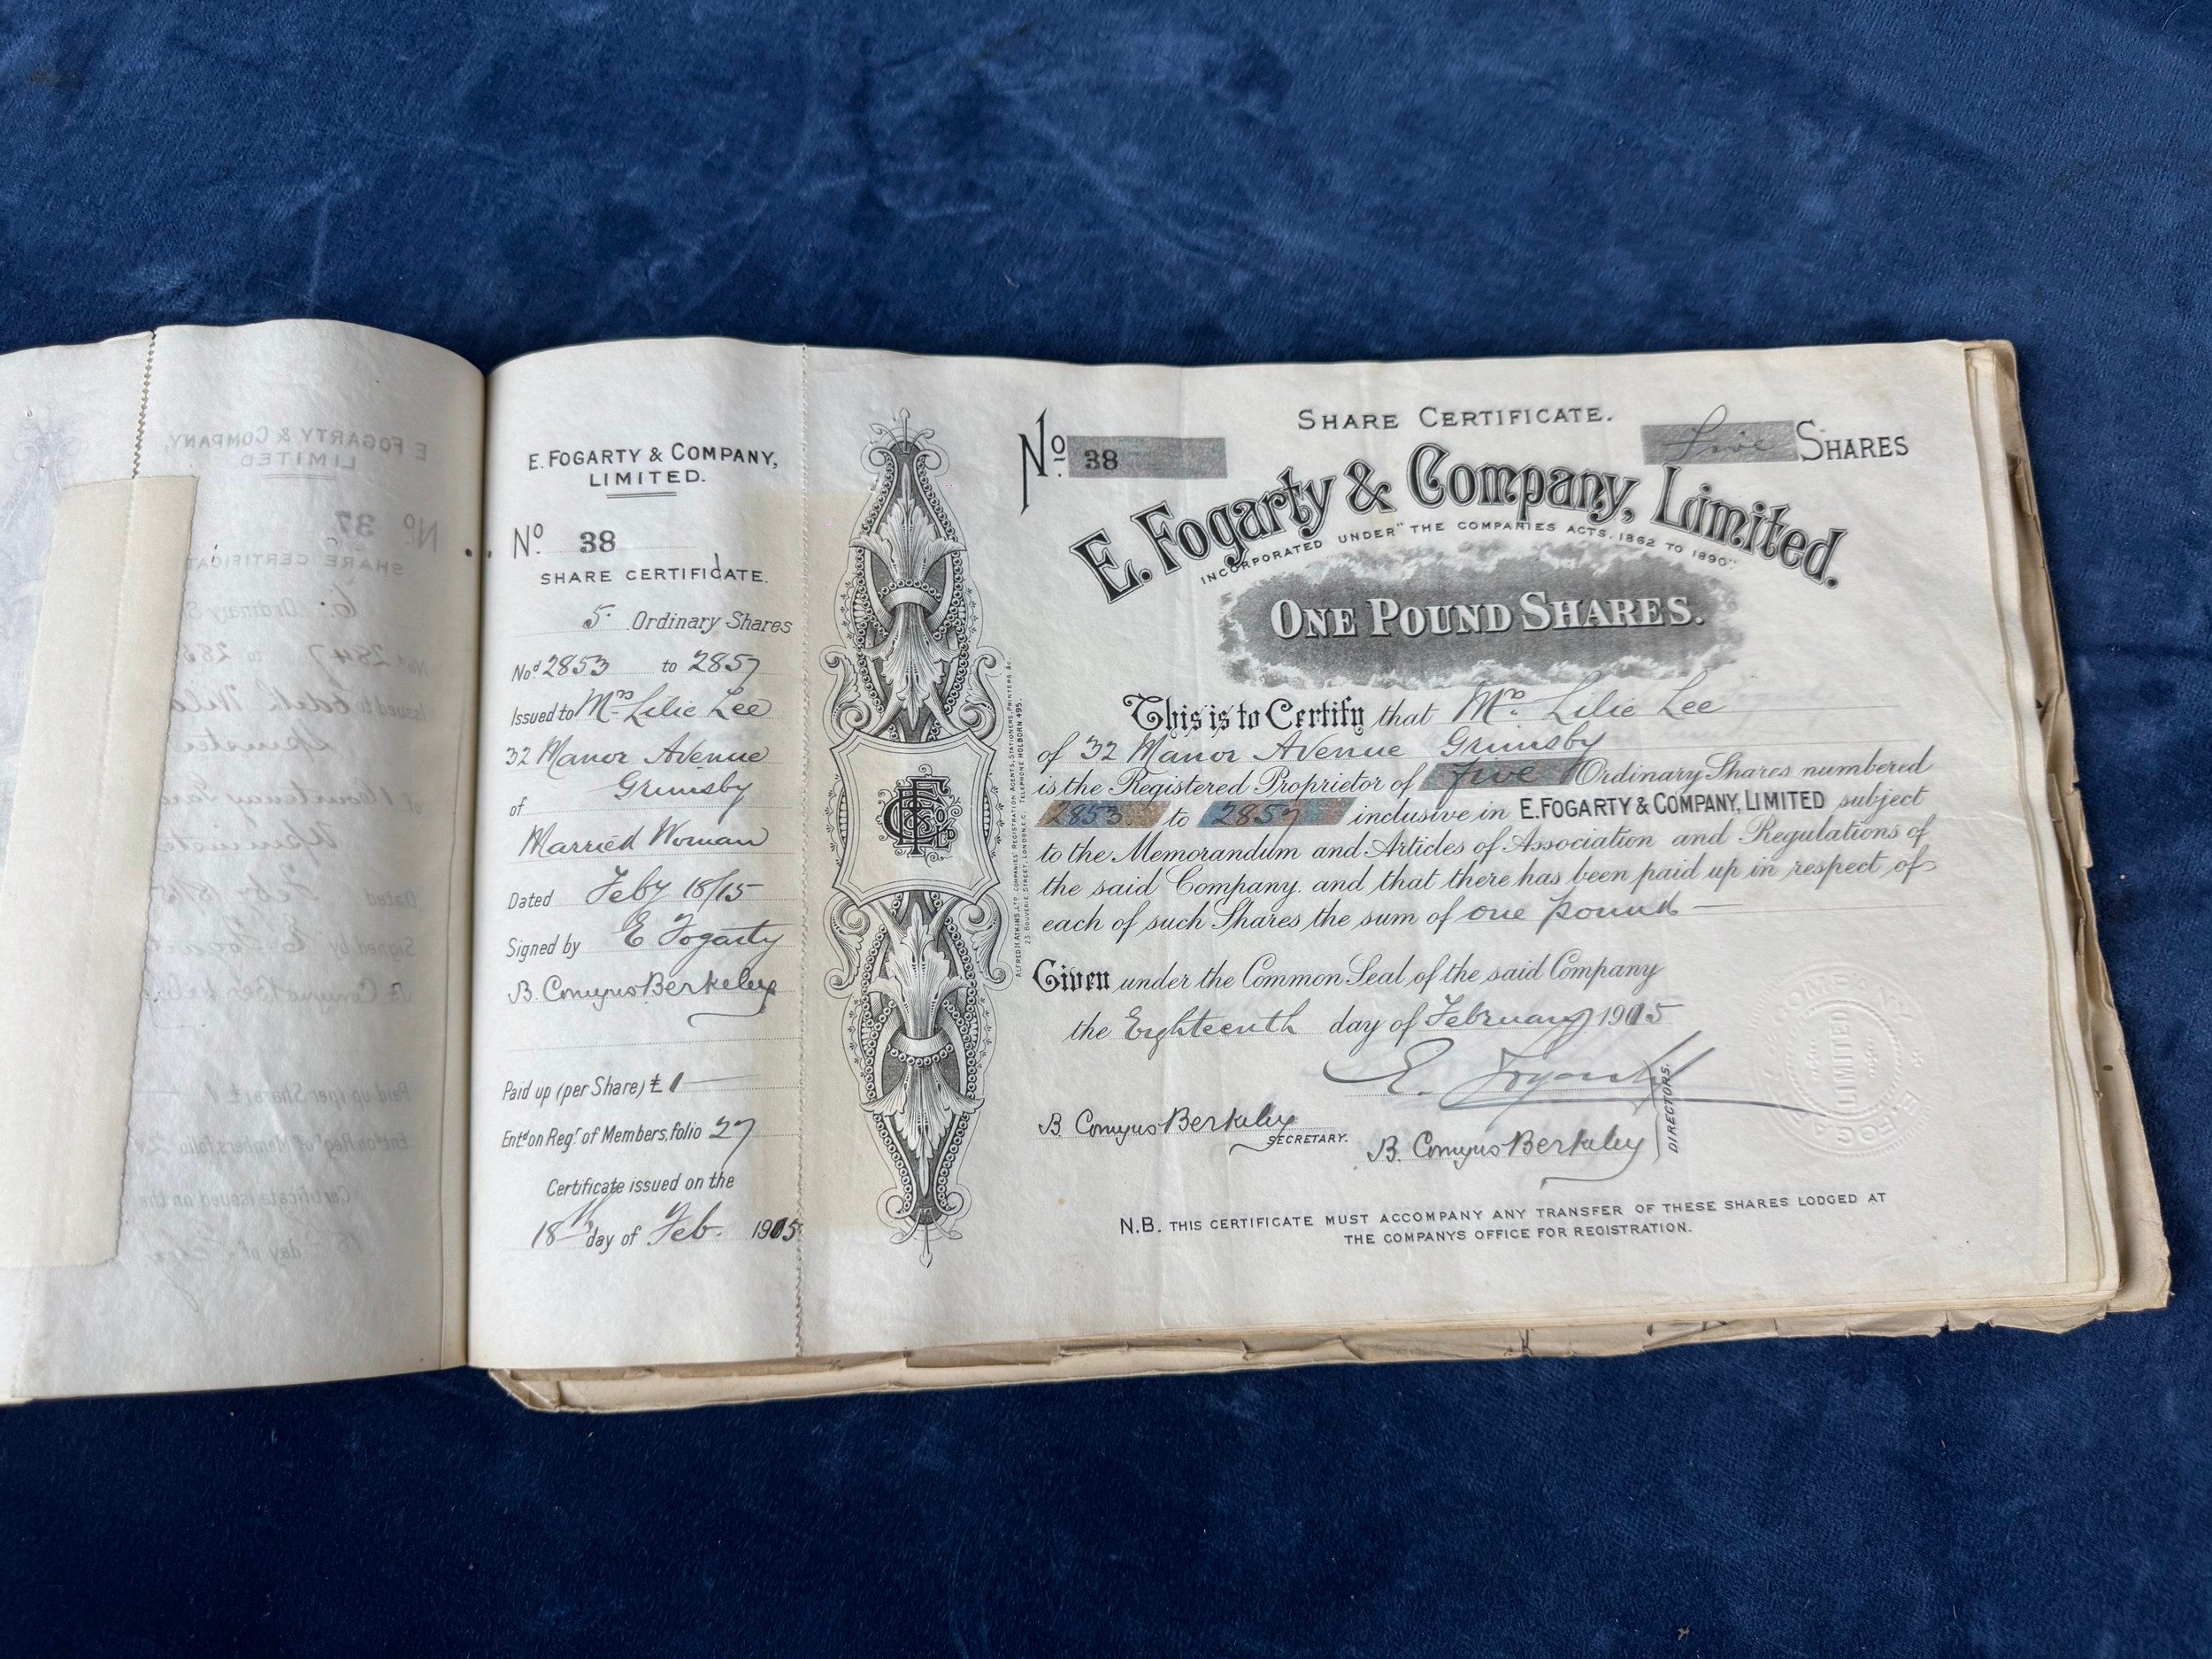 E. FOGARTY & COMPANY,
LIMITED.
No. 38
SHARE CERTIFICATE.
5. Ordinary Shares
Nod 2853 to 2857
Issued to Mrs Lilie Lee
32 Manor Avenue
Grimsby
of
Married Woman
Dated Feby 18/15
Signed by E Fogarty
B. Comyns Berkeley
Paid up (per Share) £ 1
Entd on Regr of Members, folio 27
Certificate issued on the
18th day of Feb. 1915
ALFRED H. ATKINS, LTD. COMPANIES' REGISTRATION AGENTS, STATIONERS, PRINTERS &c.
23, BOUVERIE STREET, LONDON, E.C. TELEPHONE HOLBORN 495.
SHARE CERTIFICATE.
No 38
Five SHARES
E. Fogarty & Company, Limited.
INCORPORATED UNDER "THE COMPANIES ACTS, 1862 TO 1890"
ONE POUND SHARES.
This is to Certify that Mrs. Lilie Lee
of 32 Manor Avenue Grimsby
is the Registered Proprietor of five Ordinary Shares numbered
2853 to 2857 inclusive in E. FOGARTY & COMPANY, LIMITED subject
to the Memorandum and Articles of Association and Regulations of
the said Company. and that there has been paid up in respect of
each of such Shares the sum of one pound
Given under the Common Seal of the said Company
the Eighteenth day of February 1915
E. Fogarty
B. Comyns Berkeley
SECRETARY.
B. Comyns Berkeley
DIRECTORS.
LIMITED
N.B. THIS CERTIFICATE MUST ACCOMPANY ANY TRANSFER OF THESE SHARES LODGED AT
THE COMPANYS OFFICE FOR REGISTRATION.